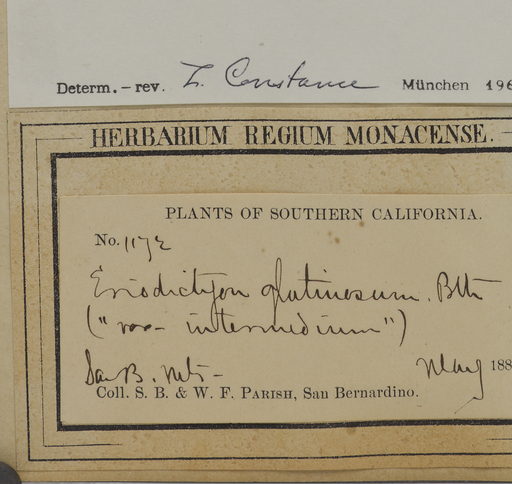 Determ. – rev. L. Constance München 196
HERBARIUM REGIUM MONACENSE.
PLANTS OF SOUTHERN CALIFORNIA.
No. 1172
Eriodictyon glutinosum. Bth
("var. intermedium")
San B. Mts.
May 188
Coll. S. B. & W. F. PARISH, San Bernardino.